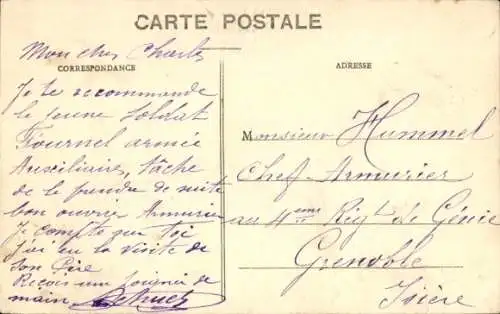 CARTE POSTALE
Mon cher Charles
CORRESPONDANCE
Je te recommande
le jeune soldat
Fournel armée
Auxiliaire, tâche
de le prendre de suite
bon ouvrier Armurier
Je compte que toi
j'ai eu la visite de
son Père
Reçois une poignée de
main
ADRESSE
Monsieur Hummel
Chef-Armurier
au 4eme Régt de Génie
Grenoble
Isère